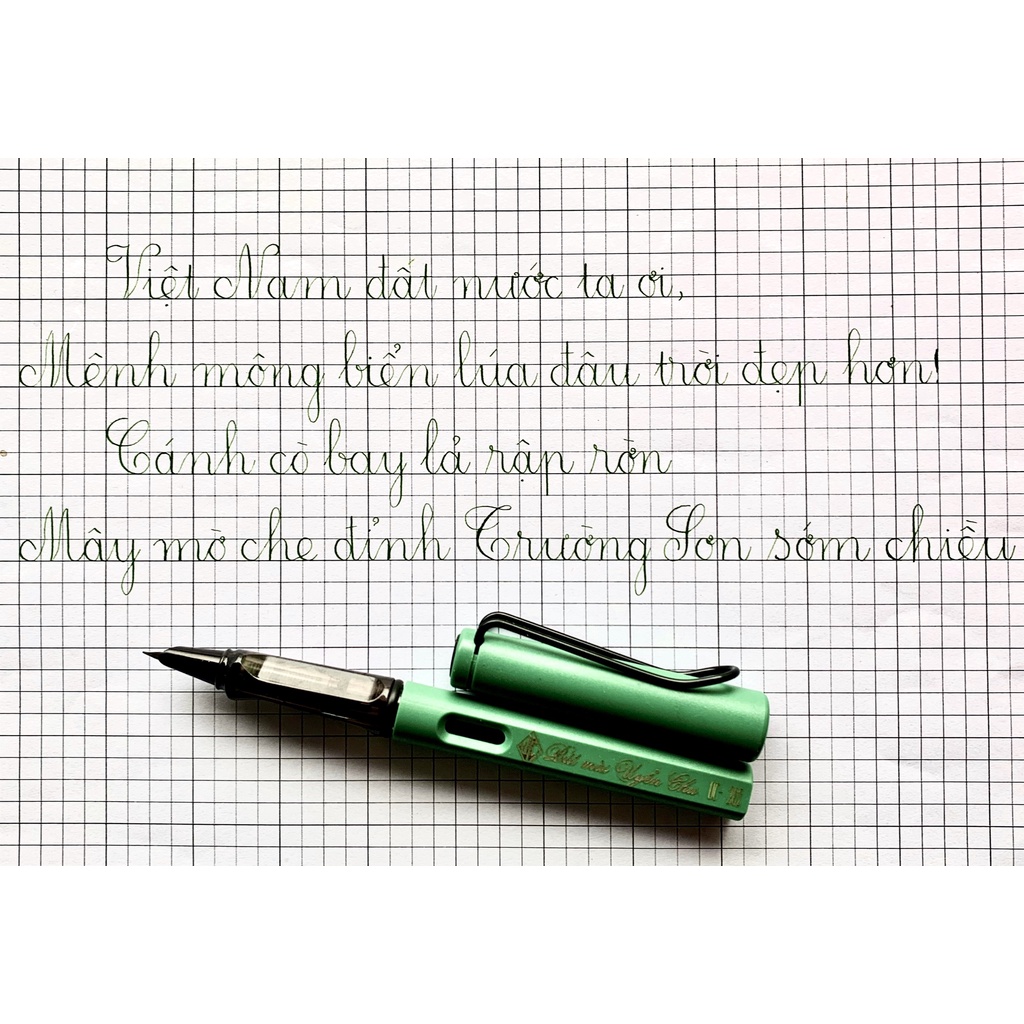 Việt Nam đất nước ta ơi,
Mênh mông biển lúa đâu trời đẹp hơn!
Cánh cò bay lả rập rờn
Mây mờ che đỉnh Trường Sơn sớm chiều
Bút mài